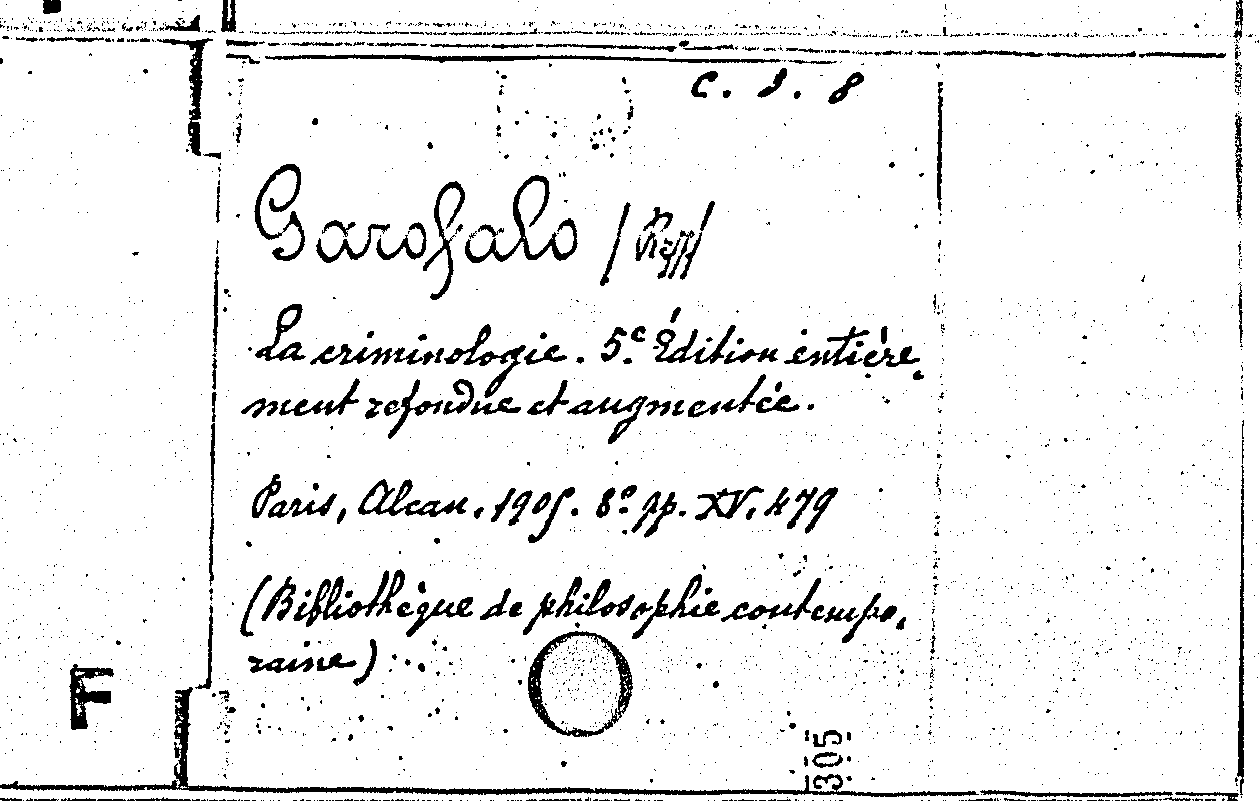 C. 9. 8
Garofalo
La criminologie. 5e. Édition entière-
ment refondue et augmentée.
Paris, Alcan. 1905. 8° pp. XV, 479
(Bibliothèque de philosophie contempo-
raine)
F
305